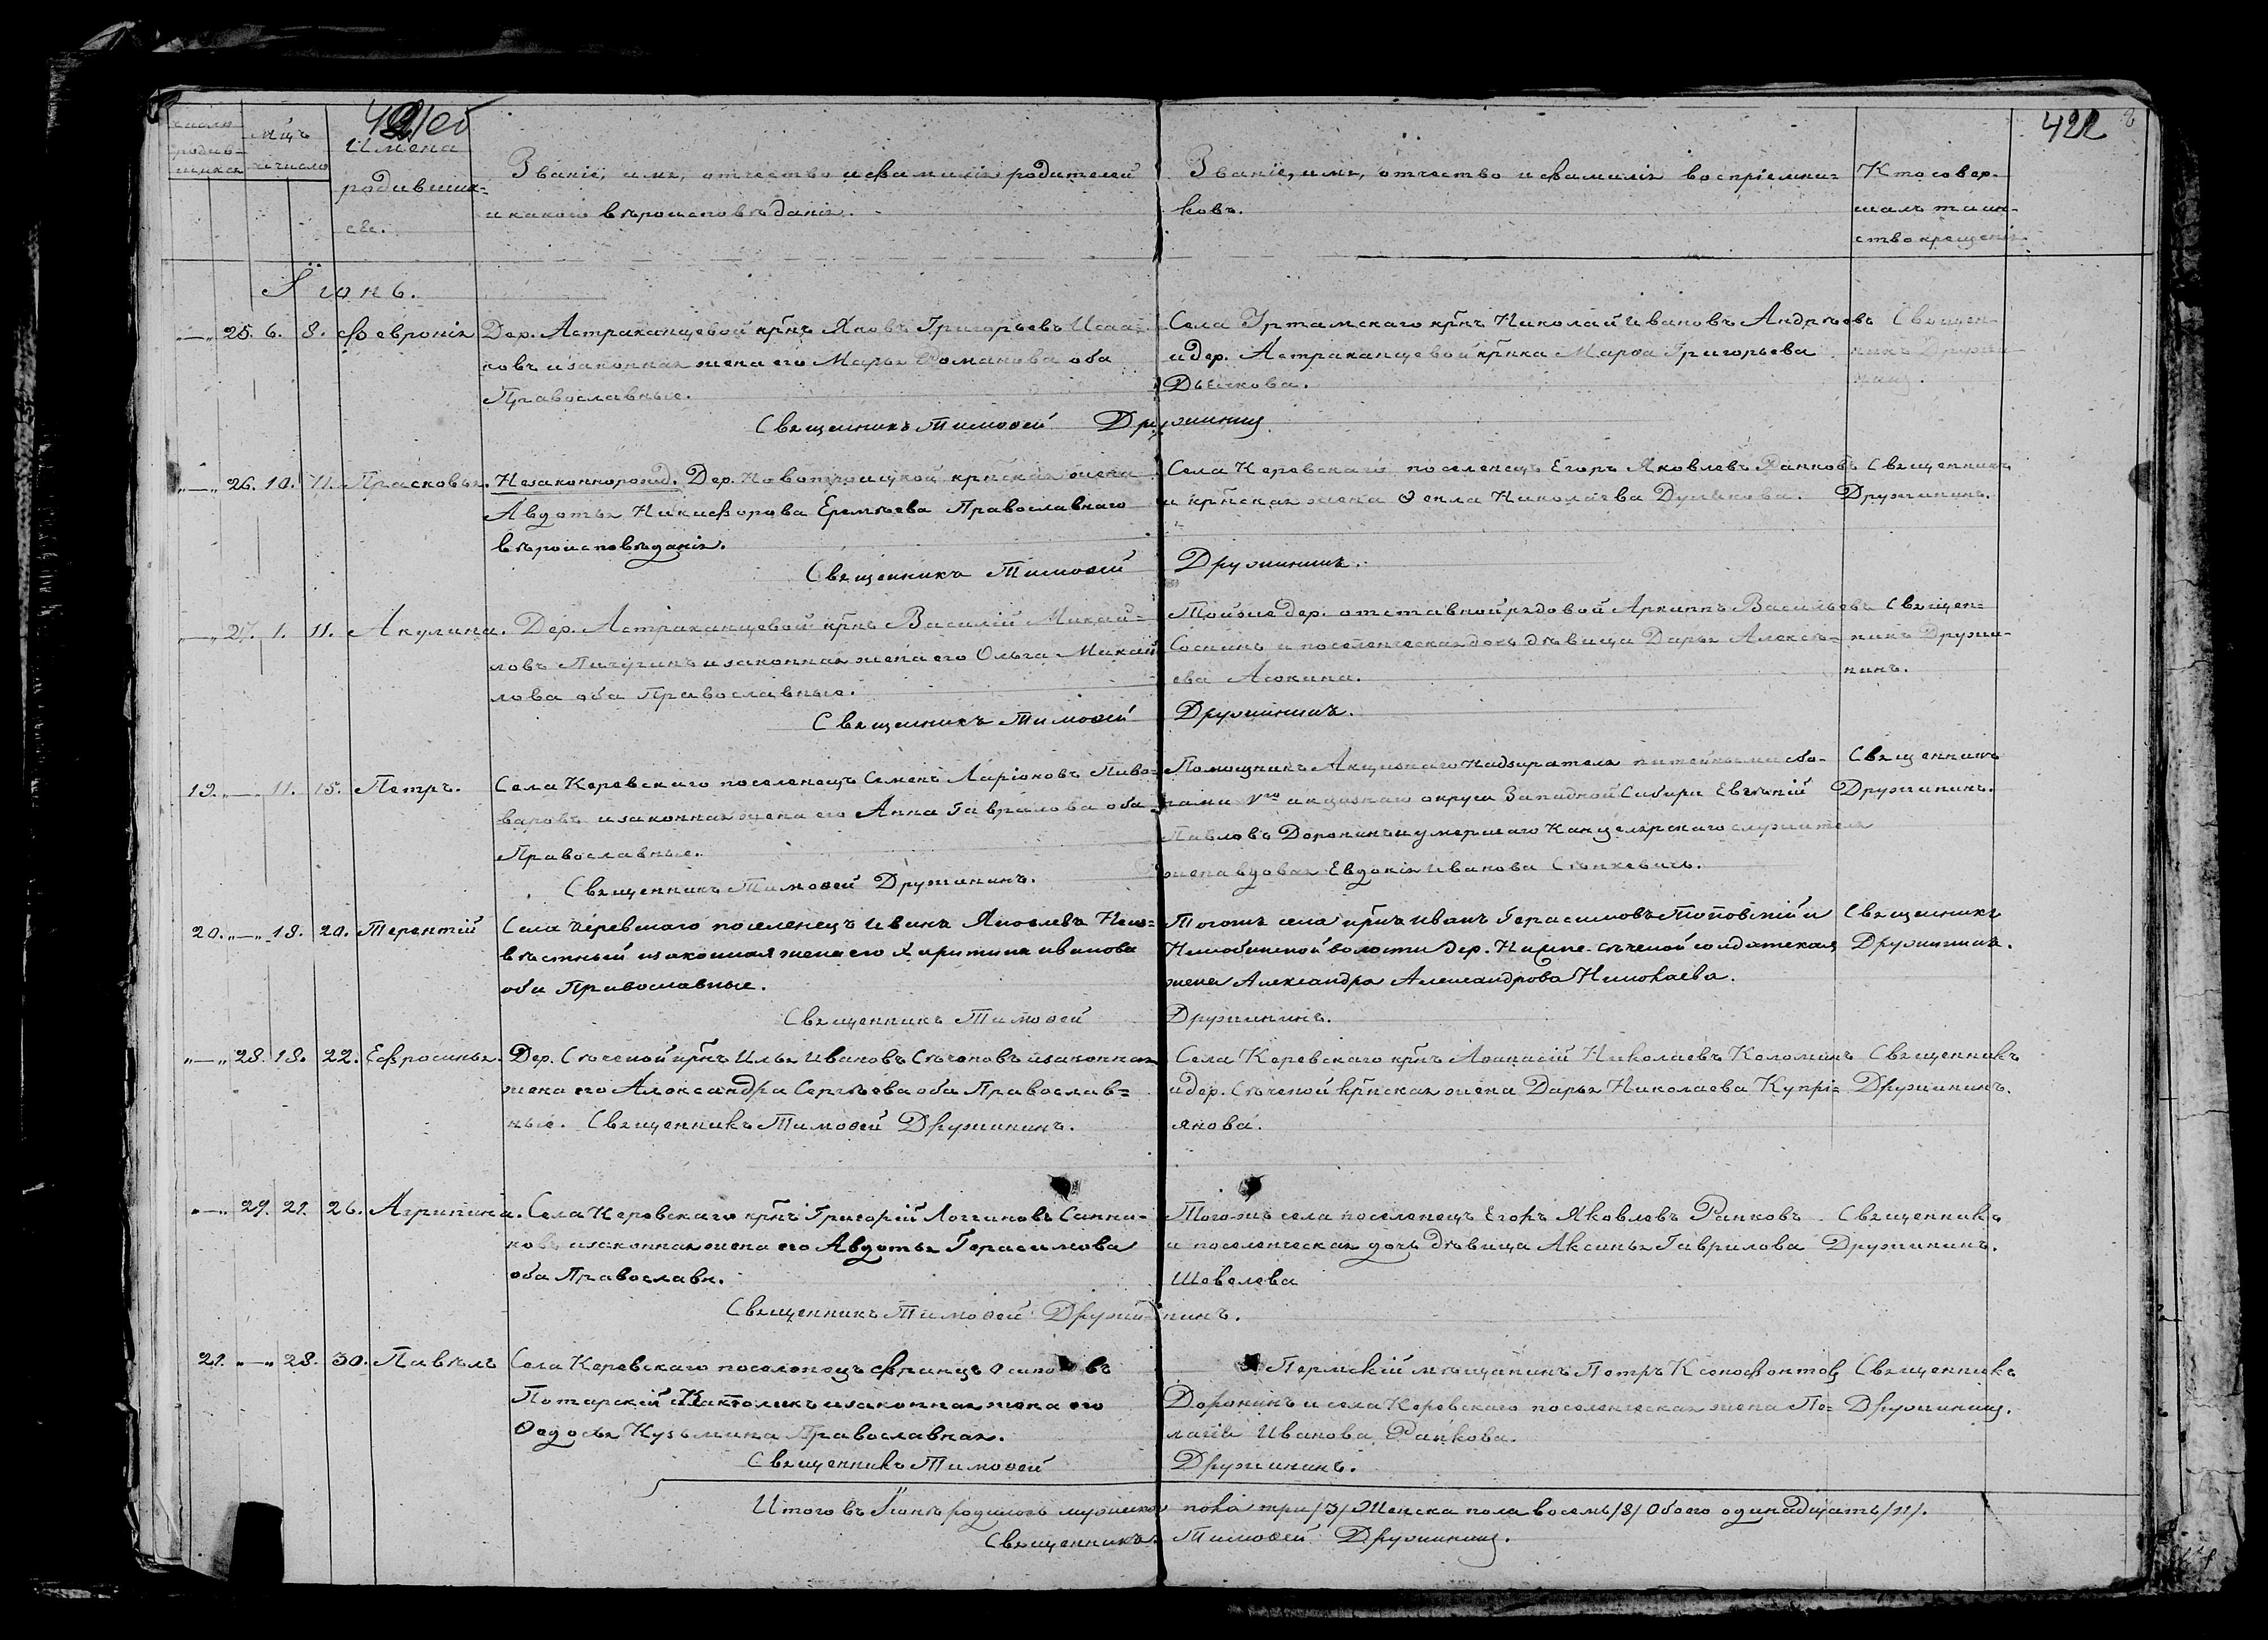 421об
422
число родив- шихся
мѣцъ и число
Имена родивших= ся.
Званіе, имя, отчество и фамилія родителей
и какого вѣроисповѣданія.
Званіе, имя, отчество и фамилія воспріемни=
ковъ.
Кто совер-
шалъ таин-
ство крещенія
Іюнь.
25. 6. 8. Февронія Дер. Астраханцевой крн҃ъ Яковъ Григорьевъ Исаа-
ковъ и законная жена его Марья Романова оба
Православные.
Села Уртамскаго крн҃ъ Николай Ивановъ Андрѣевъ
и дер. Астраханцевой крн҃ка Марѳа Григорьева
Священ-
никъ Дружи-
нинъ.
Священникъ Тимоѳей Дружининъ
26. 10. 11. Прасковья. Незаконнорожд. Дер. Новотроицкой крнская жена
Авдотья Никифорова Еремѣева Православнаго
вѣроисповѣданія.
Села Керевскаго поселенецъ Егоръ Яковлевъ Ранковъ
и крнская жена Ѳекла Николаева Дулькова.
Священникъ
Дружининъ.
Священникъ Тимоѳей Дружининъ.
27. 1. 11. Акулина. Дер. Астраханцевой крн҃ъ Василій Михай=
ловъ Пичугинъ и законная жена его Ольга Михай
лова оба Православные.
Тойже дер. отставной рядовой Архипъ Васильевъ
Соснинъ и поселенческая дочь дѣвица Дарья Алексѣ-
ева
Священ=
никъ Дружи-
нинъ.
Священникъ Тимоѳей Дружининъ.
19. 11. 15. Петръ. Села Керевскаго поселенецъ Семенъ Ларіоновъ Пиво=
варовъ и законная жена его Анна Гаврилова оба
Православные.
Помощникъ Акцизнаго Надзирателя питейными сбо-
рами V го акцизнаго округа Западной Сибири Евгеній
Павловъ Доронинъ и умершаго Канцелярскаго служителя
жена вдова Евдокія Иванова
Священникъ
Дружининъ.
Священникъ Тимоѳей Дружининъ.
20. 18. 20. Терентій Села Керевскаго поселенецъ Иванъ Яковлевъ Неиз=
вѣстный и законная жена его Харитина Иванова
оба Православные.
Тогожъ села крн҃ъ Иванъ Герасимовъ Топовскій и
Нелюбинской волости дер. солдатская
жена Александра Александрова
Священникъ
Дружининъ.
Священникъ Тимоѳей Дружининъ.
28. 18. 22. Ефросинья. Дер. Сѣченой крн҃ъ Илья Ивановъ Сѣченовъ и законная
жена его Александра Сергѣева оба Православ=
ные. Священникъ Тимоѳей Дружининъ.
Села Керевскаго крн҃ъ Аѳанасій Николаевъ Коломинъ
и дер. Сѣченой крнская жена Дарья Николаева Купрі=
янова.
Священникъ
Дружининъ.
29. 21. 26. Агрипина. Села Керевскаго крн҃ъ Григорій Логгиновъ Санни-
ковъ и законная жена его Авдотья Герасимова
оба Православн.
Тогожъ села поселенецъ Егоръ Яковлевъ Ранковъ
и поселенческая дочь дѣвица Аксинья Гаврилова
Шевелева
Священникъ
Дружининъ.
Священникъ Тимоѳей Дружининъ.
21. 28. 30. Павелъ Села Керевскаго поселенецъ Францъ Осиповъ
Потарскій Католикъ и законная жена его
Ѳедосья Кузьмина Православная.
Пермскій мѣщанинъ Петръ Ксенофонтовъ
Доронинъ и села Керевскаго поселенческая жена Пе=
лагія Иванова Ранкова.
Священникъ
Дружининъ.
Священникъ Тимоѳей Дружининъ.
Итого въ Іюнѣ родилось мужеска пола три /3/ Женска пола восемь /8/ Обоего одинадцать /11/.
Священникъ Тимоѳей Дружининъ.